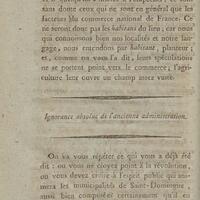 sans doute ceux qui ne sont en général que les
facteurs du commerce national de France. Ce
ne seront donc pas les habitans du lieu; car nous
qui connoissons bien nos localités et notre lan-
gage, nous entendons par habitant, planteur;
et, comme on vous l'a dit, leurs spéculations
ne se portent point vers le commerce; l'agricul-
ture leur ouvre un champ assez vaste.
Ignorance absolue de l'ancienne administration.
On va vous répéter ce qui vous a déjà été
dit: ou vous ne croyez point à la révolution,
ou vous devez croire à l'esprit public qui ani-
mera les municipalités de Saint-Domingue,
aussi bien composées certainement qu'il en